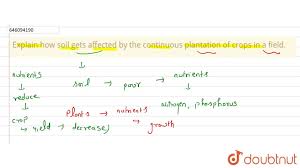 646094190
Explain how soil gets affected by the continuous plantation of crops in a field.
nutrients
↓
reduce
↓
crop
↳ yield → decreases
↓
soil → poor → nutrients
↓
nitrogen, phosphorus
Plants → nutrients
↳ growth
doubtnut